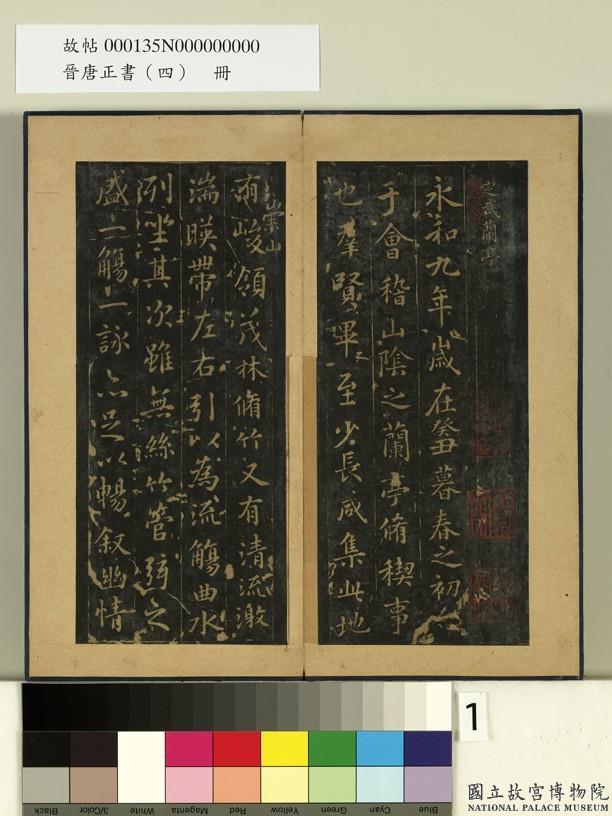 故帖 000135N000000000
晉唐正書（四） 冊
定武蘭亭
永和九年歲在癸丑暮春之初會
于會稽山陰之蘭亭脩稧事
也羣賢畢至少長咸集此地
有崇山峻領茂林脩竹又有清流激
湍暎帶左右引以為流觴曲水
列坐其次雖無絲竹管弦之
盛一觴一詠亦足以暢叙幽情
1
Black 3/Color White Magenta Red Yellow Green Cyan Blue
國立故宮博物院
NATIONAL PALACE MUSEUM